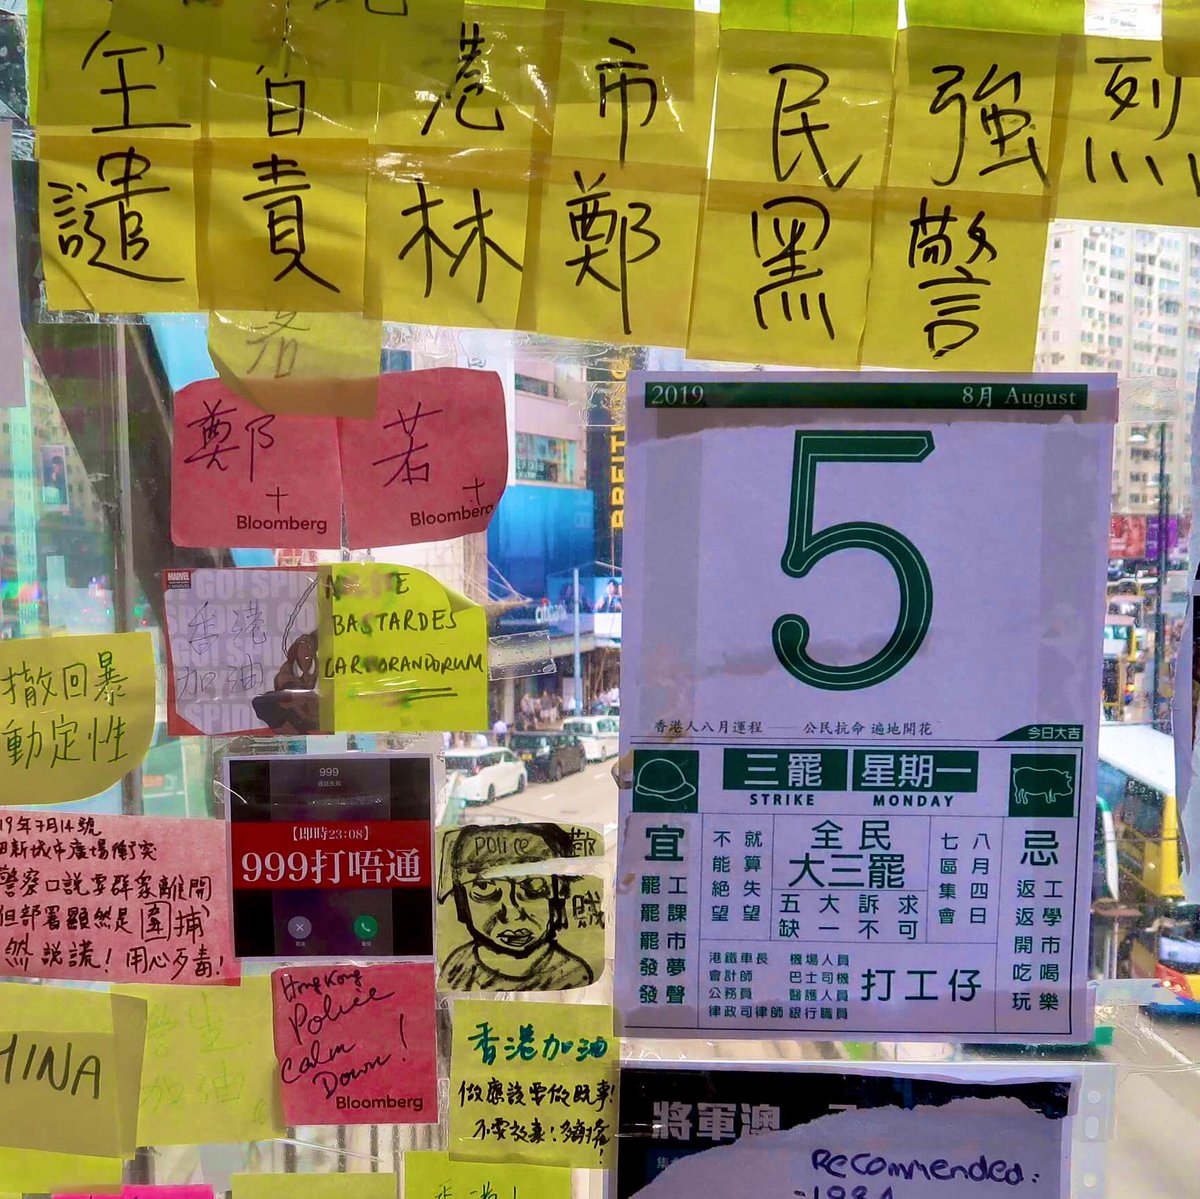 全 香 港 市 民 強 烈
譴 責 林 鄭 黑 警
鄭
+
Bloomberg
若
+
Bloomberg
MARVEL
GO! SPI
香港
加油
BASTARDES
CARBORANDORUM
撤回暴
動定性
19年7月14號
新城市廣場衝突
警察口說要群眾離開
但部署顯然是圍捕
然說謊! 用心歹毒!
999
【即時23:08】
999打唔通
police
賊
HONG KONG
Police
Calm
Down!
Bloomberg
HINA
學生
加油
香港加油
做應該要做既事!
不要放棄!
BREITLING
2019
8月 August
5
香港人八月運程 —— 公民抗命 遍地開花
今日大吉
三罷
星期一
STRIKE
MONDAY
宜
罷工
罷課
罷市
發夢
發聲
就算失望
不能絕望
全民
大三罷
五大訴求
缺一不可
八月四日
七區集會
忌
返工
返學
開市
吃喝
玩樂
港鐵車長 機場人員
會計師 巴士司機
公務員 醫護人員
律政司律師 銀行職員
打工仔
將軍澳
Recommended:
1984